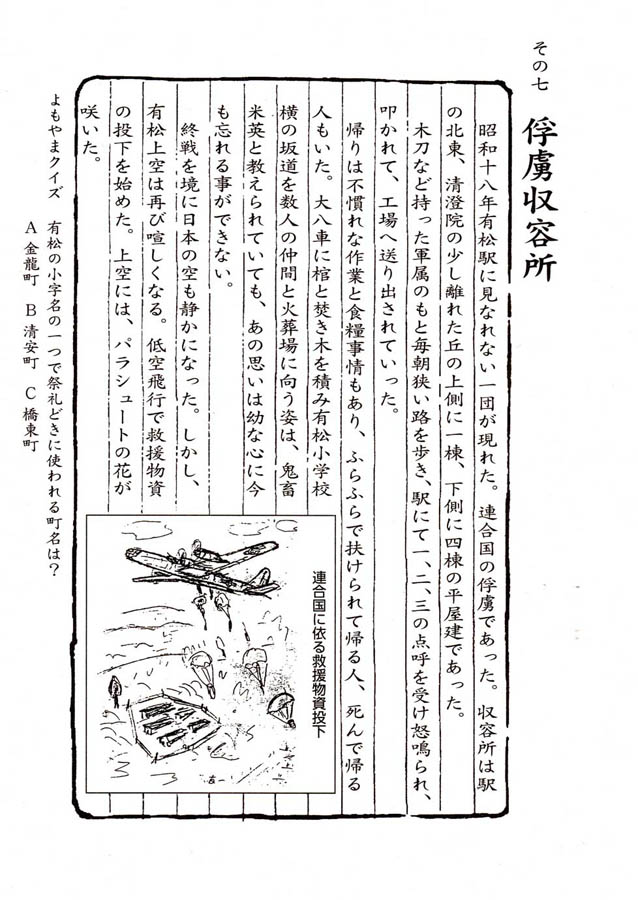 その七 俘虜収容所
昭和十八年有松駅に見なれない一団が現れた。連合国の俘虜であった。収容所は駅
の北東、清澄院の少し離れた丘の上側に一棟、下側に四棟の平屋建であった。
木刀など持った軍属のもと毎朝狭い路を歩き、駅にて一、二、三の点呼を受け怒鳴られ、
叩かれて、工場へ送り出されていった。
帰りは不慣れな作業と食糧事情もあり、ふらふらで扶けられて帰る人、死んで帰る
人もいた。大八車に棺と焚き木を積み有松小学校
横の坂道を数人の仲間と火葬場に向う姿は、鬼畜
米英と教えられていても、あの思いは幼な心に今
も忘れる事ができない。
終戦を境に日本の空も静かになった。しかし、
有松上空は再び喧しくなる。低空飛行で救援物資
の投下を始めた。上空には、パラシュートの花が
咲いた。
連合国に依る救援物資投下
よもやまクイズ 有松の小字名の一つで祭礼どきに使われる町名は?
A 金龍町 B 清安町 C 橋東町